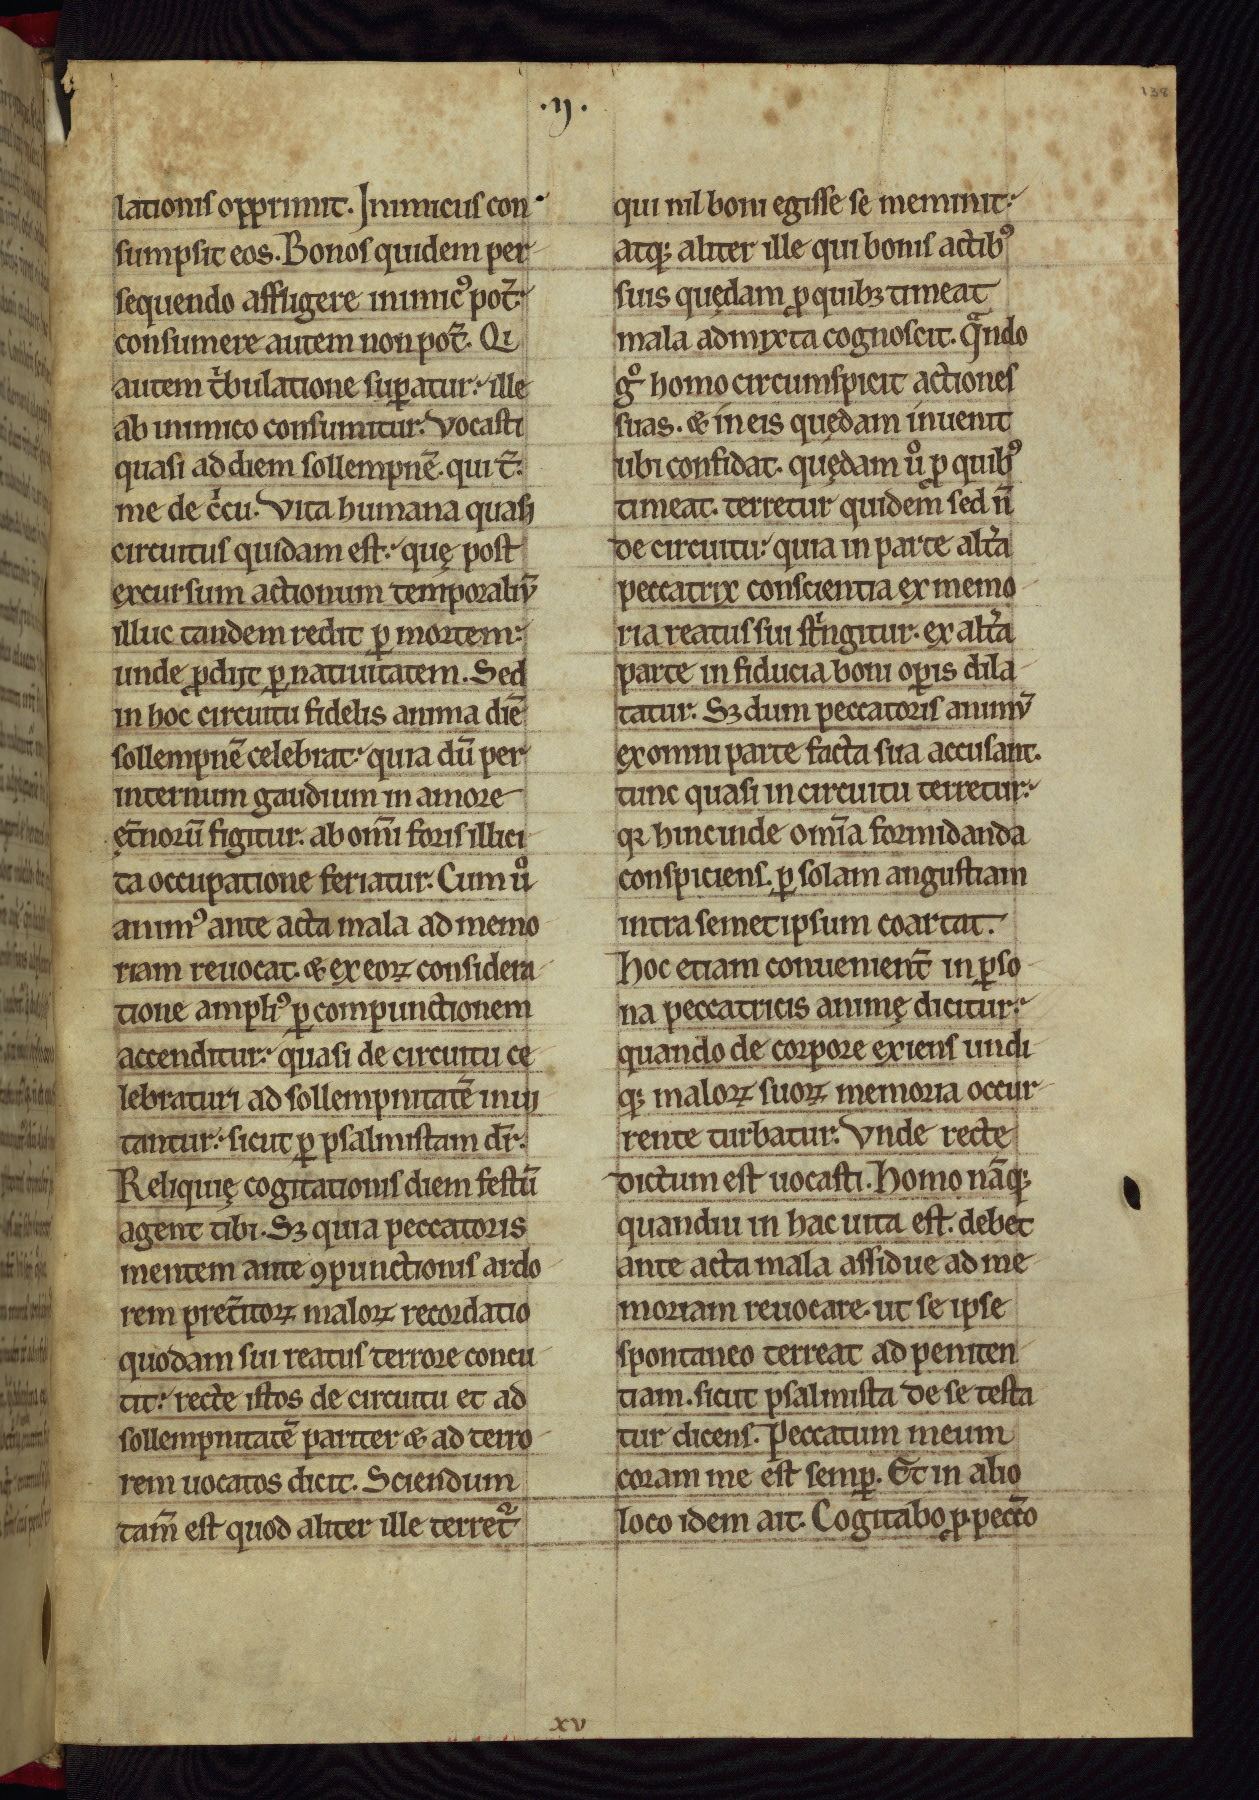 .ij.
138
lationis opprimit. Inimicus con
sumpsit eos. Bonos quidem per
sequendo affligere inimicꝰ pot̃.
consumere autem non pot̃. Qi
autem tͥbulatione suꝑatur. ille
ab inimico consumitur. Vocasti
quasi ad diem sollempnẽ. qui t̃.
me de cͥcu. Vita humana quasi
circuitus quidam est. quę post
excursum actionum temporaliũ
illuc tandem redit ꝑ mortem.
unde ꝓdijt ꝑ natiuitatem. Sed
in hoc circuitu fidelis anima diẽ
sollempnẽ celebrat. quia dũ per
internum gaudium in amore
ęt̃norũ figitur. ab om̃i foris illici
ta occupatione feriatur. Cum uͦ
animꝰ ante acta mala ad memo
riam reuocat. & ex eoꝝ considera
tione ampliꝰ ꝑ compunctionem
accenditur. quasi de circuitu ce
lebraturi ad sollempnitatẽ inui
tantur. sicut ꝑ psalmistam dr̃.
Reliquię cogitationis diem festũ
agent tibi. Sꝫ quia peccatoris
mentem ante ꝯpunctionis ardo
rem pret̃itoꝝ maloꝝ recordatio
quodam sui reatus terrore concu
tit. recte istos de circuitu et ad
sollempnitatẽ pariter & ad terro
rem uocatos dicit. Sciendum
tam̃ est quod aliter ille terret᷑
qui nil boni egisse se meminit.
atqꝫ aliter ille qui bonis actibꝰ
suis quędam ꝓ quibꝫ timeat
mala admixta cognoscit. Qᷓndo
gͦ homo circumspicit actiones
suas. & in eis quędam inuenit
ubi confidat. quędam uͦ ꝓ quibꝰ
timeat. terretur quidem sed ñ
de circuitu. quia in parte alt̃a
peccatrix conscientia ex memo
ria reatus sui stͥngitur. ex alt̃a
parte in fiducia boni oꝑis dila
tatur. Sꝫ dum peccatoris animũ
ex omni parte facta sua accusant.
tunc quasi in circuitu terretur.
qꝛ hinc inde om̃ia formidanda
conspiciens. ꝑ solam angustiam
intra semetipsum coartat.
Hoc etiam conuenient̃ in ꝑso
na peccatricis animę dicitur.
quando de corpore exiens undi
qꝫ maloꝝ suoꝝ memoria occur
rente turbatur. Vnde recte
dictum est uocasti. Homo nãqꝫ
quandiu in hac uita est. debet
ante acta mala assidue ad me
moriam reuocare. ut se ipse
spontaneo terreat ad peniten
tiam. sicut psalmista de se testa
tur dicens. Peccatum meum
coram me est semꝑ. Et in alio
loco idem ait. Cogitabo ꝓ pecc̃o
xv